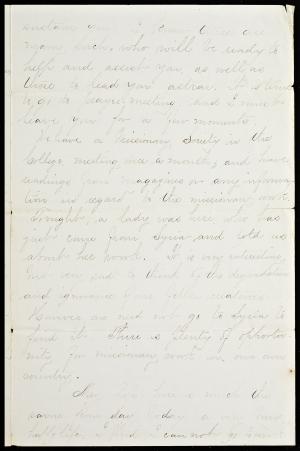 sustain you. I know there are
many such, who will be ready to
help and assist you, as well as
those to lead you astray. It is time
to go to prayer meeting and I must
leave you for a few moments.
We have a Missionary Society in the
College, meeting once a month, and have
readings from magazines or any informa-
tion in regard to the missionary work.
To-night, a lady was here, who has
just come from Syria and told us
about her work. It is very interesting,
but very sad to think of the degradation
and ignorance of our fellow creatures.
However we need not go to Syria to
find it. There is plenty of opportu-
nity for missionary work in our own
country.
My life here is much the
same from day to day, a very
happy life, I find I can not